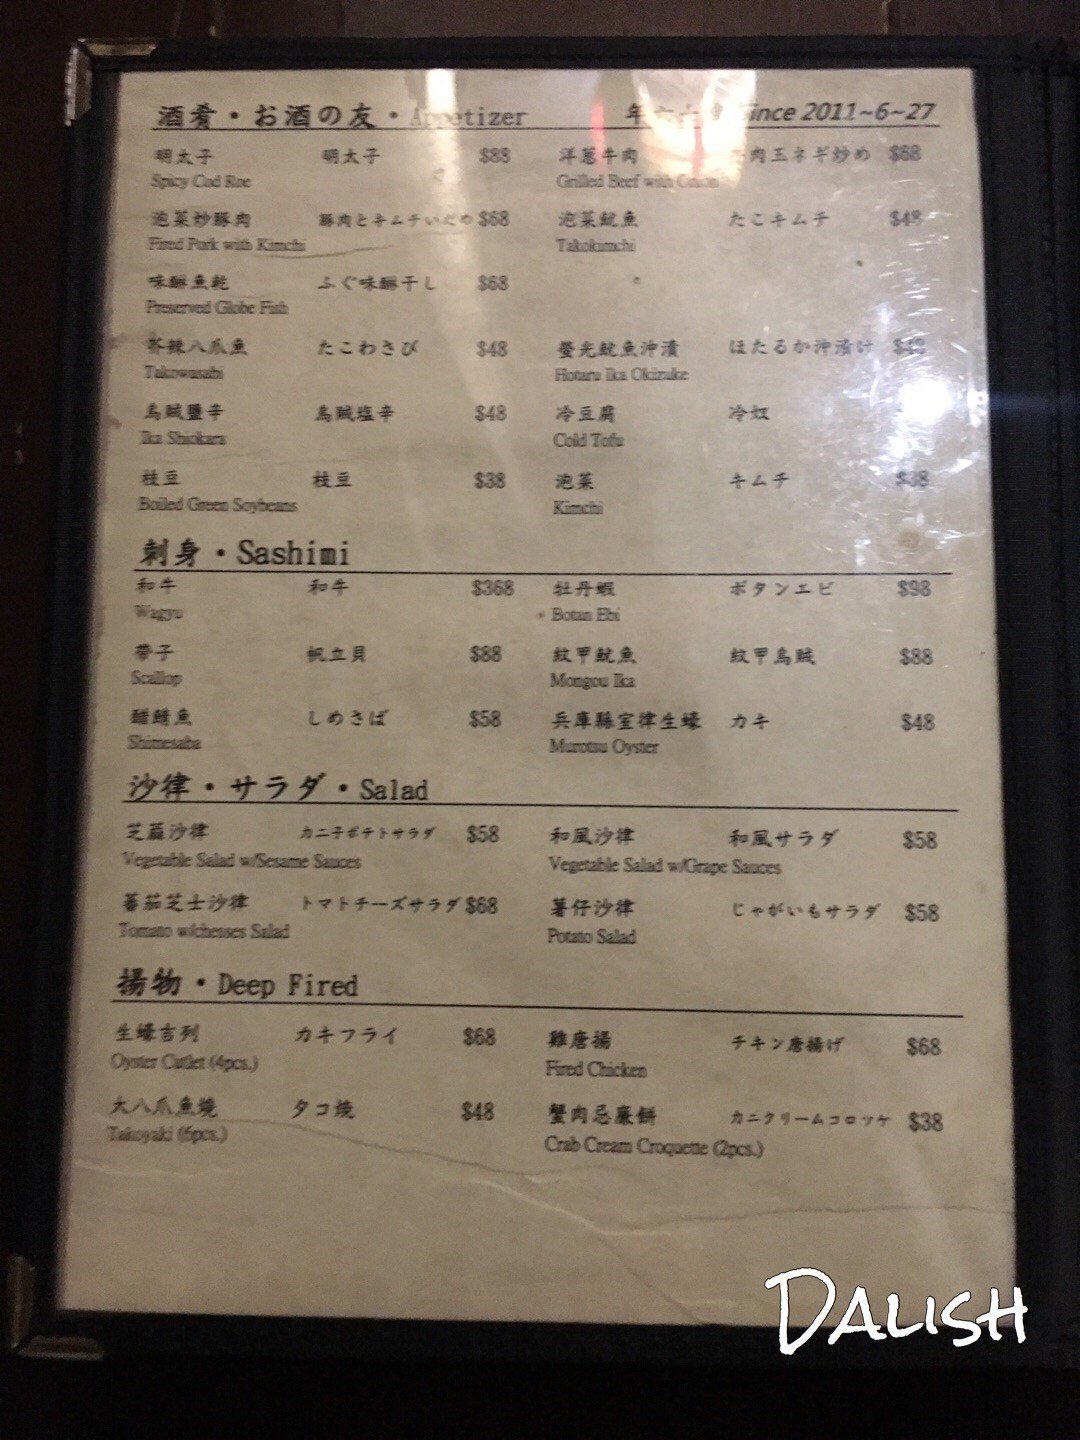 酒肴・お酒の友・Appetizer Since 2011~6~27
明太子 明太子 $88 洋蔥牛肉 肉玉ネギ炒め $68
Spicy Cod Roe Grilled Beef with Onion
泡菜炒豚肉 豚肉とキムチいため $68 泡菜魷魚 たこキムチ $48
Fired Pork with Kimchi Takokimchi
味醂魚乾 ふぐ味醂干し $68
Preserved Globe Fish
芥辣八爪魚 たこわさび $48 螢光魷魚沖漬 ほたるか沖漬け $48
Takowasabi Hotaru Ika Okizuke
烏賊鹽辛 烏賊塩辛 $48 冷豆腐 冷奴
Ika Shiokara Cold Tofu
枝豆 枝豆 $38 泡菜 キムチ $38
Boiled Green Soybeans Kimchi
刺身・Sashimi
和牛 和牛 $368 牡丹蝦 ボタンエビ $98
Wagyu Botan Ebi
帶子 帆立貝 $88 紋甲魷魚 紋甲烏賊 $88
Scallop Mongou Ika
醋鯖魚 しめさば $58 兵庫縣室律生蠔 カキ $48
Shimesaba Murotsu Oyster
沙律・サラダ・Salad
芝蔴沙律 カニ子ポテトサラダ $58 和風沙律 和風サラダ $58
Vegetable Salad w/Sesame Sauces Vegetable Salad w/Grape Sauces
蕃茄芝士沙律 トマトチーズサラダ $68 薯仔沙律 じゃがいもサラダ $58
Tomato w/chesses Salad Potato Salad
揚物・Deep Fired
生蠔吉列 カキフライ $68 雞唐揚 チキン唐揚げ $68
Oyster Cutlet (4pcs.) Fired Chicken
大八爪魚燒 タコ焼 $48 蟹肉忌廉餅 カニクリームコロッケ $38
Takoyaki (6pcs.) Crab Cream Croquette (2pcs.)
DALISH